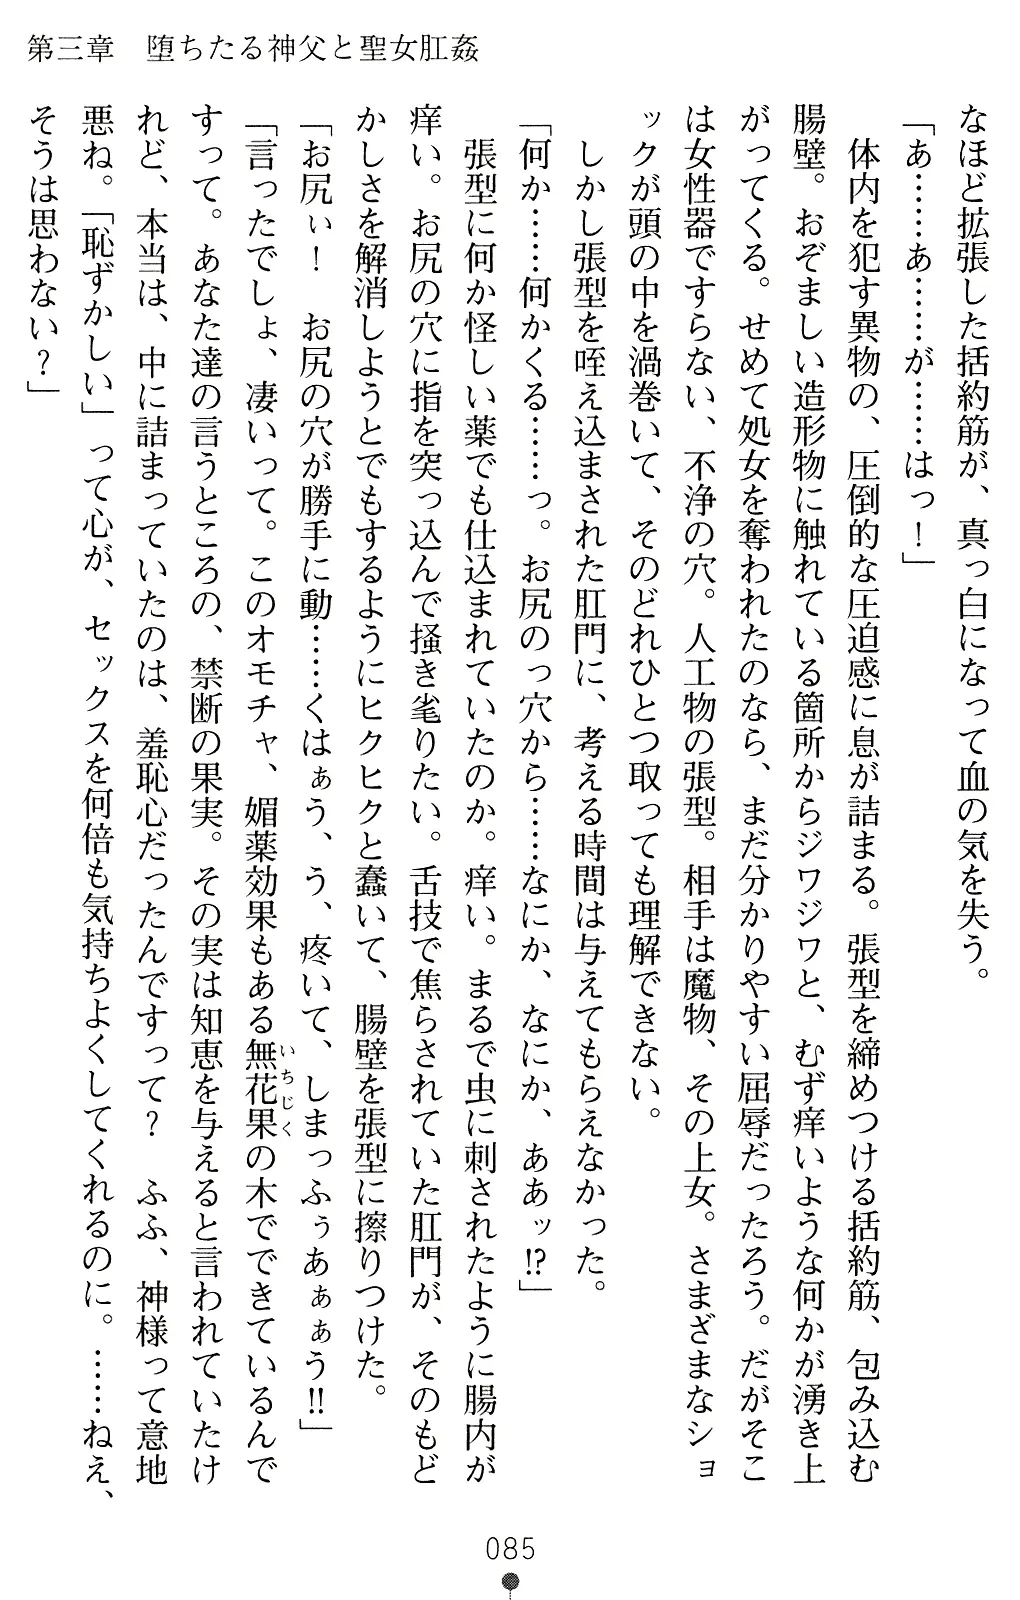 第三章　堕ちたる神父と聖女肛姦
なほど拡張した括約筋が、真っ白になって血の気を失う。
「あ……あ……が……はっ！」
　体内を犯す異物の、圧倒的な圧迫感に息が詰まる。張型を締めつける括約筋、包み込む
腸壁。おぞましい造形物に触れている箇所からジワジワと、むず痒いような何かが湧き上
がってくる。せめて処女を奪われたのなら、まだ分かりやすい屈辱だったろう。だがそこ
は女性器ですらない、不浄の穴。人工物の張型。相手は魔物、その上女。さまざまなショ
ックが頭の中を渦巻いて、そのどれひとつ取っても理解できない。
　しかし張型を咥え込まされた肛門に、考える時間は与えてもらえなかった。
「何か……何かくる……っ。お尻のっ穴から……なにか、なにか、ああッ!?」
　張型に何か怪しい薬でも仕込まれていたのか。痒い。まるで虫に刺されたように腸内が
痒い。お尻の穴に指を突っ込んで掻き毟りたい。舌技で焦らされていた肛門が、そのもど
かしさを解消しようとでもするようにヒクヒクと蠢いて、腸壁を張型に擦りつけた。
「お尻ぃ！　お尻の穴が勝手に動……くはぁう、う、疼いて、しまっふぅあぁぁう!!」
「言ったでしょ、凄いって。このオモチャ、媚薬効果もある無花果いちじくの木でできているんで
すって。あなた達の言うところの、禁断の果実。その実は知恵を与えると言われていたけ
れど、本当は、中に詰まっていたのは、羞恥心だったんですって？　ふふ、神様って意地
悪ね。「恥ずかしい」って心が、セックスを何倍も気持ちよくしてくれるのに。……ねえ、
そうは思わない？」
085